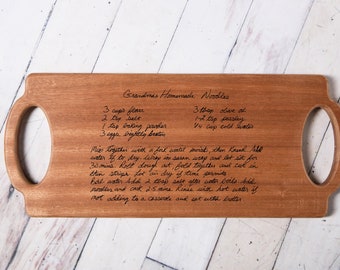 Grandma's Homemade Noodles
3 cups flour 3 tbsp olive oil
2 tsp salt 1-2 tsp parsley
1 tsp baking powder 1/4 cup cold water
3 eggs lightly beaten
Mix together with a fork until moist then knead. Add
water if to dry. Wrap in saran wrap and let sit for
30 mins. Roll dough out, fold into third and cut in
thin strips. for air dry if time permits.
Boil water add 2 tbsp salt after water boils. Add
noodles and cook 25 mins. Rinse with hot water if
not adding to a casserole and eat with butter